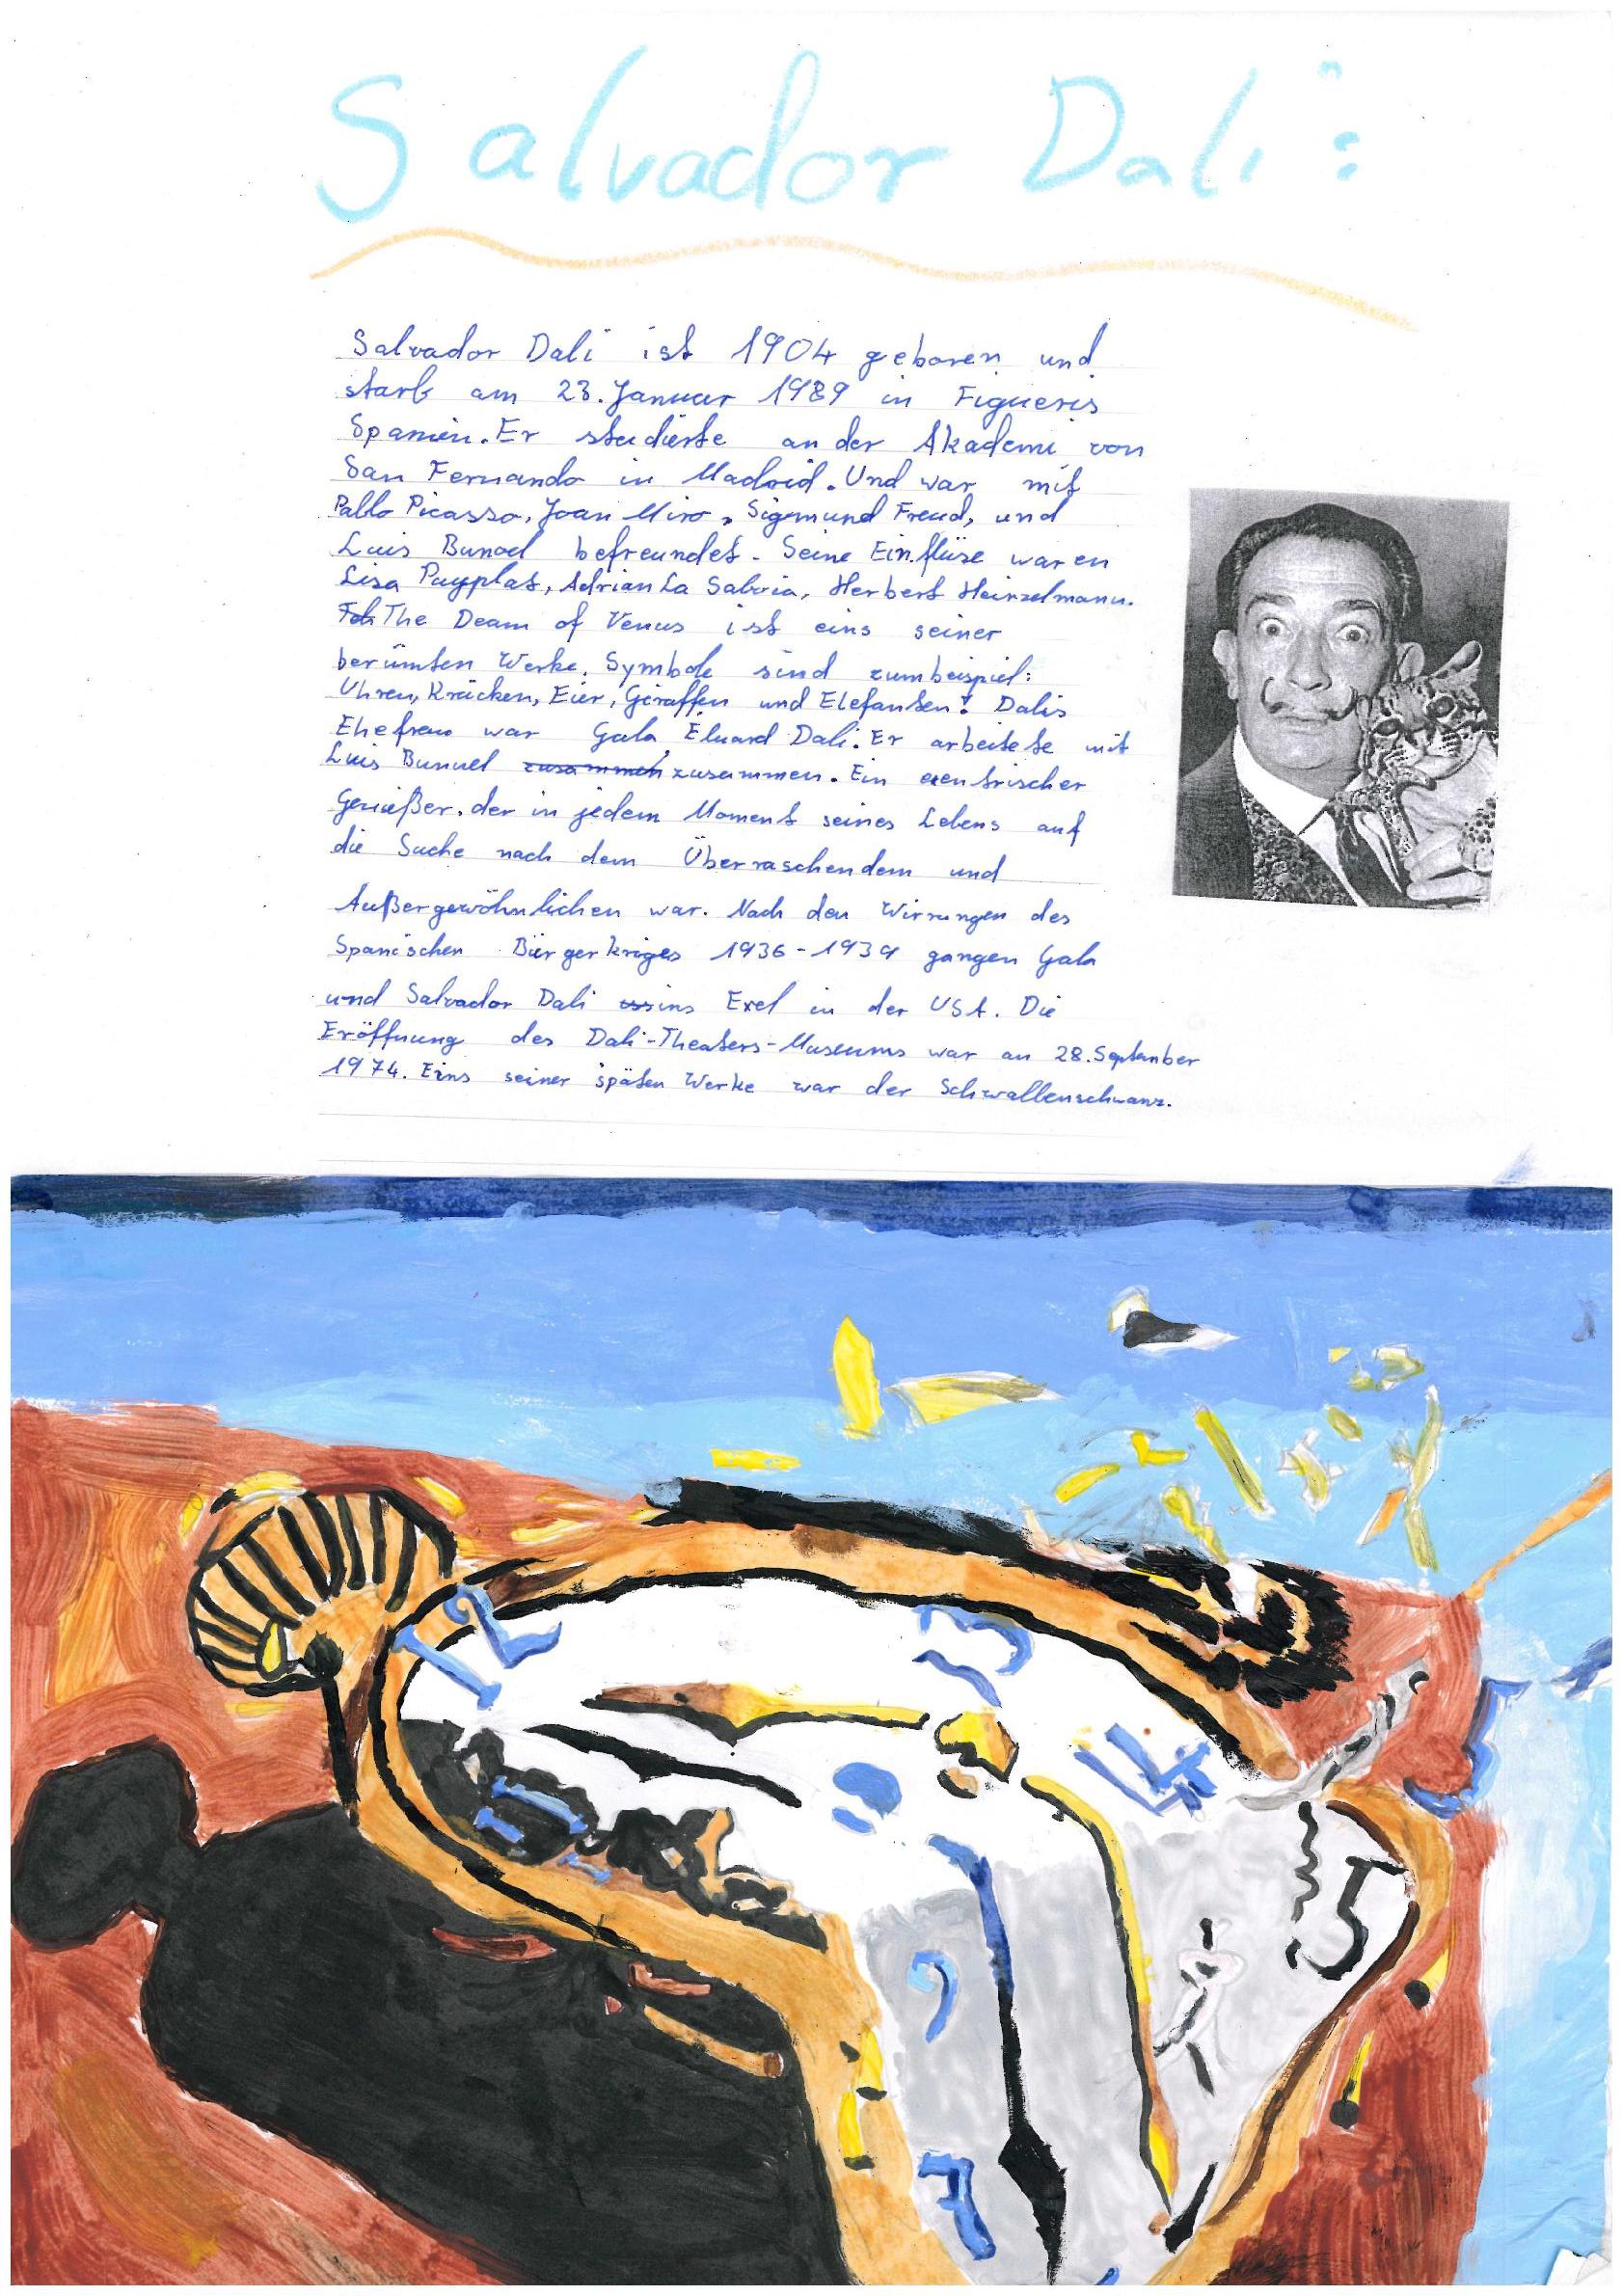 Salvador Dali:
Salvador Dali ist 1904 geboren und
starb am 23. Januar 1989 in Figueris
Spanien. Er studierte an der Akademi von
San Fernando in Madrid. Und war mit
Pablo Picasso, Joan Miro, Sigmund Freud, und
Luis Bunoel befreundet. Seine Einflüse waren
Lisa Puyplat, Adrian La Salvia, Herbert Heinzelmann.
The Deam of Venus ist eins seiner
berümten Werke. Symbole sind zumbeispiel:
Uhren, Kräcken, Eier, Giraffen und Elefanten! Dalis
Ehefrau war Gala Eluard Dali. Er arbeitete mit
Luis Bunuel zusammen zusammen. Ein exentrischer
Genießer, der in jedem Moment seines Lebens auf
die Suche nach dem Überraschendem und
Außergewöhnlichen war. Nach den Wirrungen des
Spanischen Bürgerkriges 1936-1939 gangen Gala
und Salvador Dali ins Exel in der USA. Die
Eröffnung des Dali-Theaters-Museums war an 28. September
1974. Eins seiner späten Werke war der Schwallenschwanz.
12
1
4
5
9
7